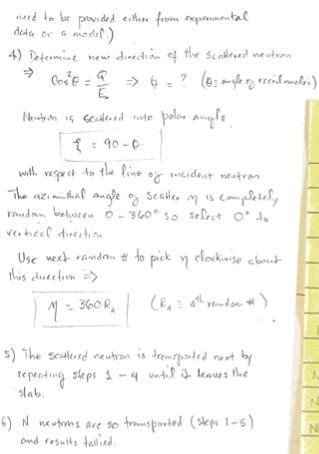 need to be provided either from experimental
data or a model.)
4) Determine new direction of the scattered neutron
⇒ Cos²θ = G/Eₙ ⇒ θ = ? (θ = angle of recoil nuclei)
Neutron is scattered into polar angle
ξ = 90 - θ
with respect to the line of incident neutron
The azimuthal angle of scatter η is completely
random between 0 - 360° so select 0° to
vertical direction
Use next random # to pick η clockwise about
this direction ⇒
η = 360 R₄ (R₄ = 4th random #)
5) The scattered neutron is transported next by
repeating steps 1 - 4 until it leaves the
slab.
6) N neutrons are so transported (steps 1-5)
and results tallied.